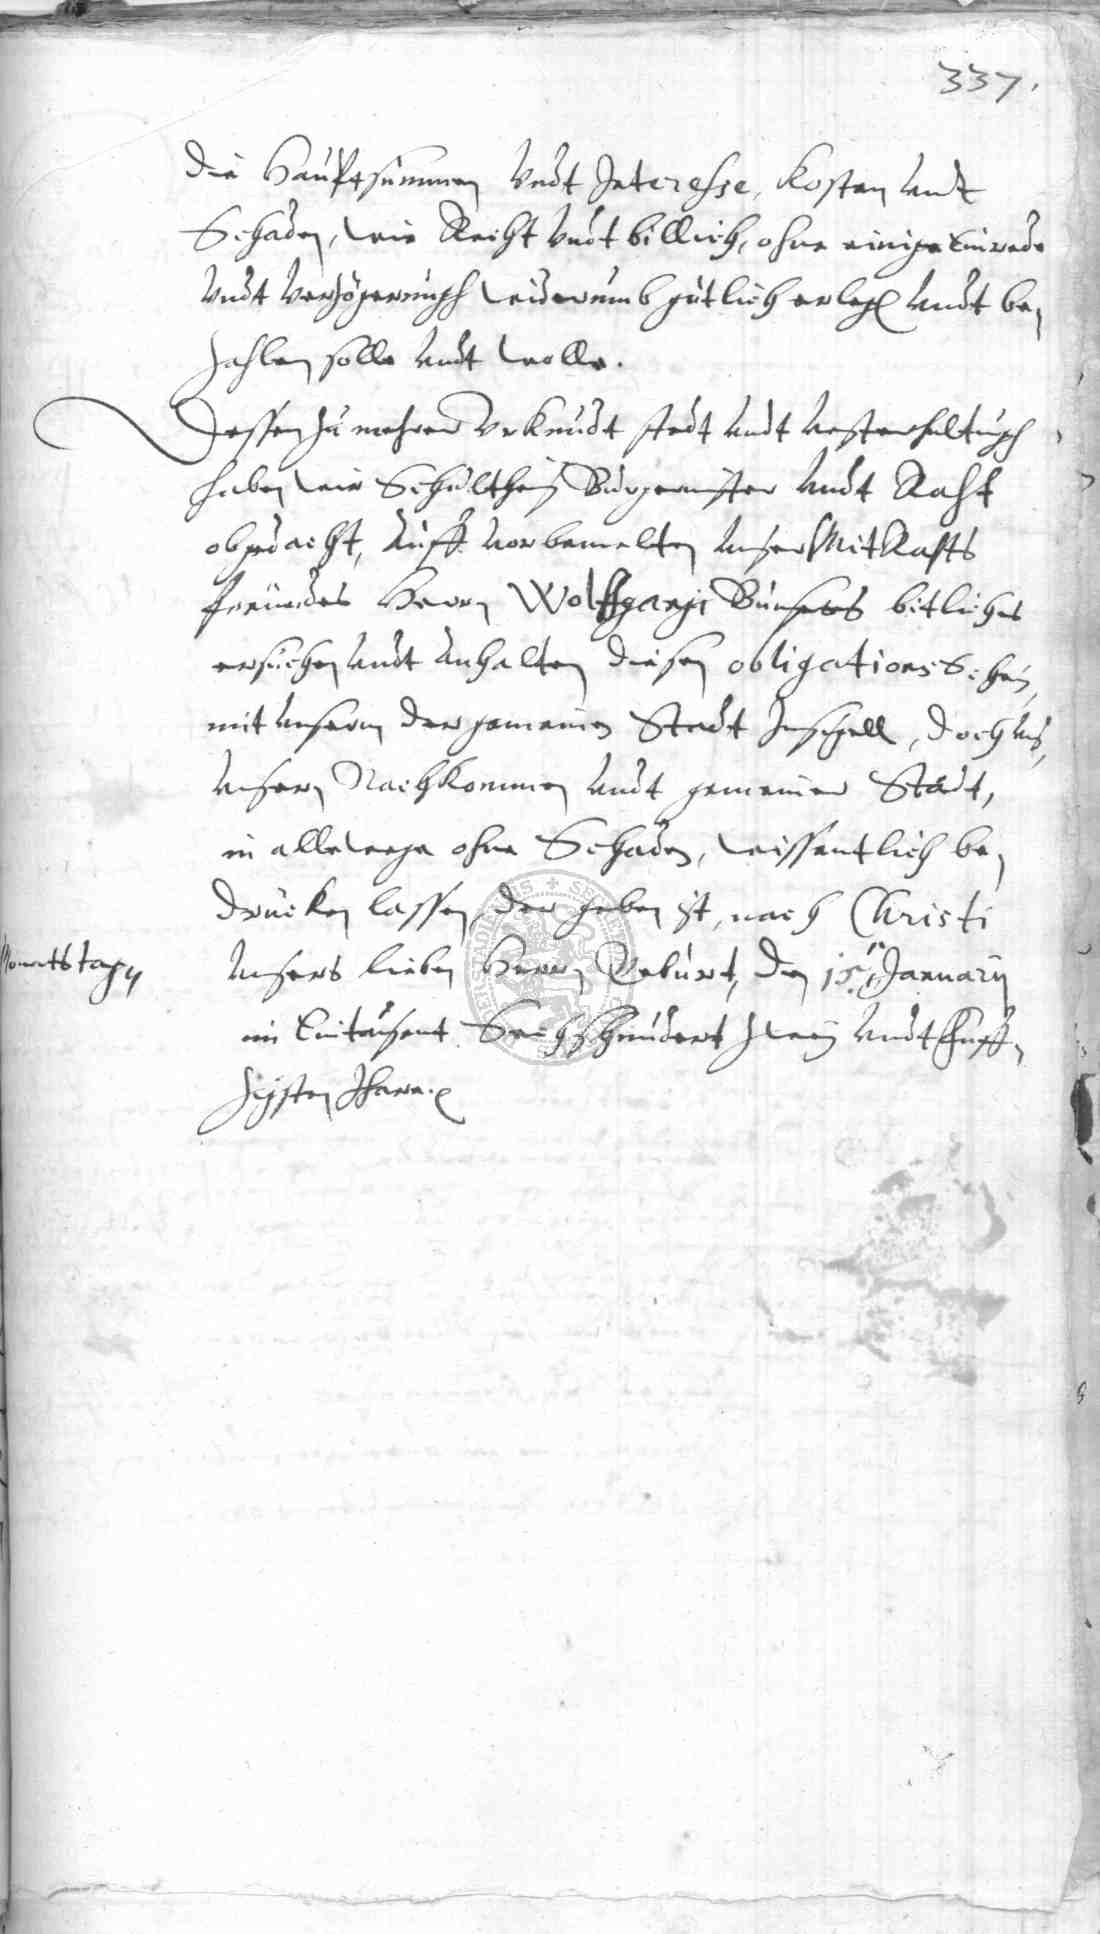 337.
die Hauptsummen vndt Interesse, Kosten vndt
Schaden, wie Recht vndt billich, ohne einige Einrede
vndt Verzögerungh widerumb gütlich erlegen vndt be,
zahlen solle vndt wolle.
Dessen zu mehrer Vrkundt stedt vndt vesterhaltungh
haben wir Schultheiß Burgemister vndt Raht
obgedacht, auff vorbemelten vnsers MitRahts
freundes Herrn Wolffgangi bitliches
ersuchen vndt anhalten diesen obligationsSchein,
mit vnserm der gemeinen Stadt Insigell, doch vns,
vnsern Nachkommen vndt gemeiner Stadt,
in allewege ohne Schaden, wissentlich be,
drucken lassen, der geben ist, nach Christi
Monatstagen
vnsers lieben Herrn Geburt, den 15. January
im Eintausent Sechshundert zwey vndt funff,
zigsten Ihare.